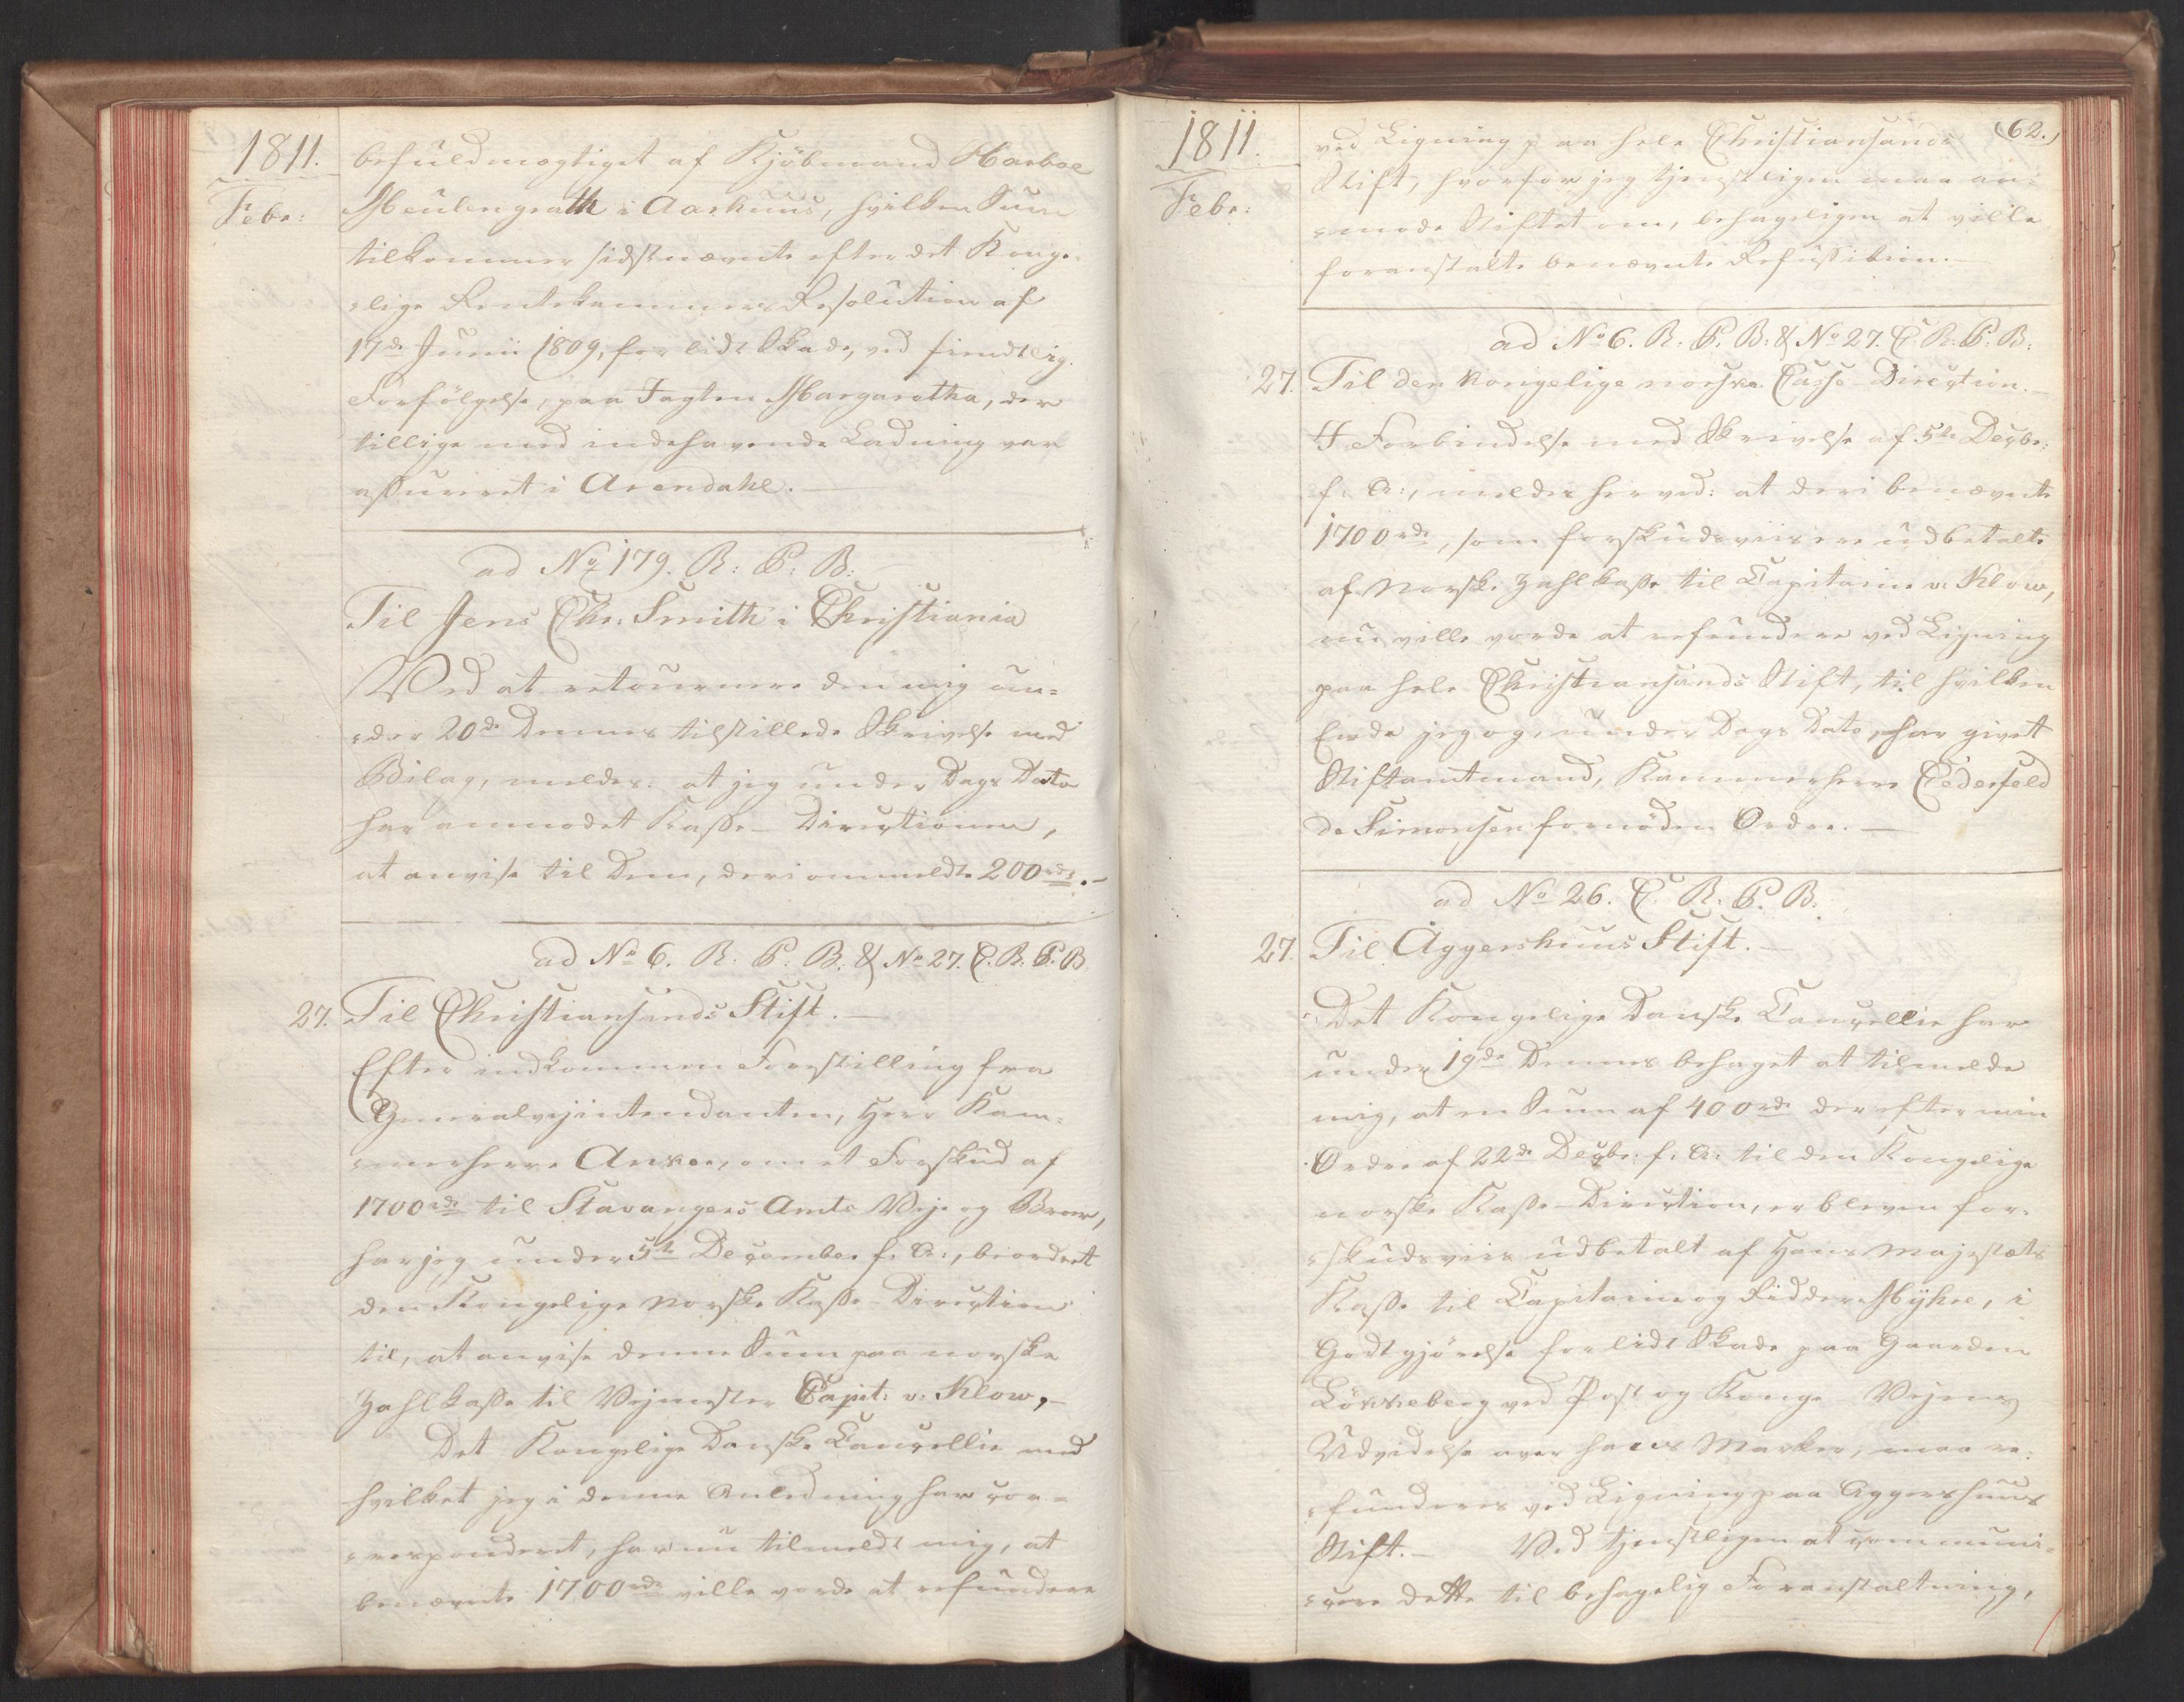 1811.
Febr:
befuldmægtiget af Kjöbmand Harboe
Meulengrath i Aarhuus, hvilken Sum
tilkommer sidstnævnte efter det Konge-
=lige Rentekammers Resolution af
17de Junii 1809, for lidt Skade, ved fiendtlig
Forfölgelse, paa Jagten Margaretha, der
tillige med indehavende Ladning var
assureret i Arendahl.—
ad No 179. R: P: B:
Til Jens Chr: Smith i Christiania
Ved at retournere den mig un=
=der 20de Dennes tilstillede Skrivelse med
Bilag, meldes: at jeg under Dags Dato
har anmodet Kasse-Directionen,
at anvise til Dem, deri ommeldte 200 rdr.—
ad No 6. R. P. B. & No 27. C. R. P. B
27. Til Christiansands Stift.—
Efter indkommen Forestilling fra
Generalveiintendanten, Herr Kam-
=merherre Anker, om et Forskud af
1700 rdr til Stavangers Amts Veje og Broer,
har jeg under 5te December f. A:, beordret
den Kongelige norske Kasse-Direction
til, at anvise denne Sum paa norske
Zahlkasse til Vejmester Capit: v: Klow,—
Det Kongelige Danske Cancellie med
hvilket jeg i denne Anledning har cor=
=responderet, har nu tilmeldt mig, at
benævnte 1700 rdr ville vorde at refundere
1811.
Febr:
(62.)
ved Ligning paa hele Christiansands
Stift, hvorfor jeg tjenstligen maa an-
=mode Stiftet om, behageligen at ville
foranstalte benævnte Refussition.—
ad No 6. R. P. B: & No 27. C. R: P: B:
27. Til den kongelige norske Casse-Direction.—
I Forbindelse med Skrivelse af 5te Decbr:
f: A:, meldes herved: at deri benævnte
1700 rdr, som forskudsviis ere udbetalte
af norske Zahlkasse til Capitaine v: Klow,
nu ville vorde at refundere ved Ligning
paa hele Christiansands Stift, til hvilken
Ende jeg og, under Dags Dato, har givet
Stiftamtmand, Kammerherre Cederfeld
de Simonsen fornöden Ordre.—
ad No 26. C. R: P. B:
27. Til Aggershuus Stift.—
Det Kongelige Danske Cancellie har
under 19de Dennes behaget at tilmelde
mig, at en Sum af 400 rdr der efter min
Ordre af 22de Decbr: f: A: til den Kongelige
norske Kasse-Direction, er bleven for-
=skudsviis udbetalt af Hans Majestæts
Kasse til Capitaine og Ridder Myhre, i
Godtgjörelse for lidt Skade paa Gaarden
Lökkeberg ved Post og Konge Vejens
Udvidelse over hans Marker, maa re-
=funderes ved Ligning paa Aggershuus
Stift.— Ved tjenstligen at communi-
=cere dette til behagelig Foranstaltning,